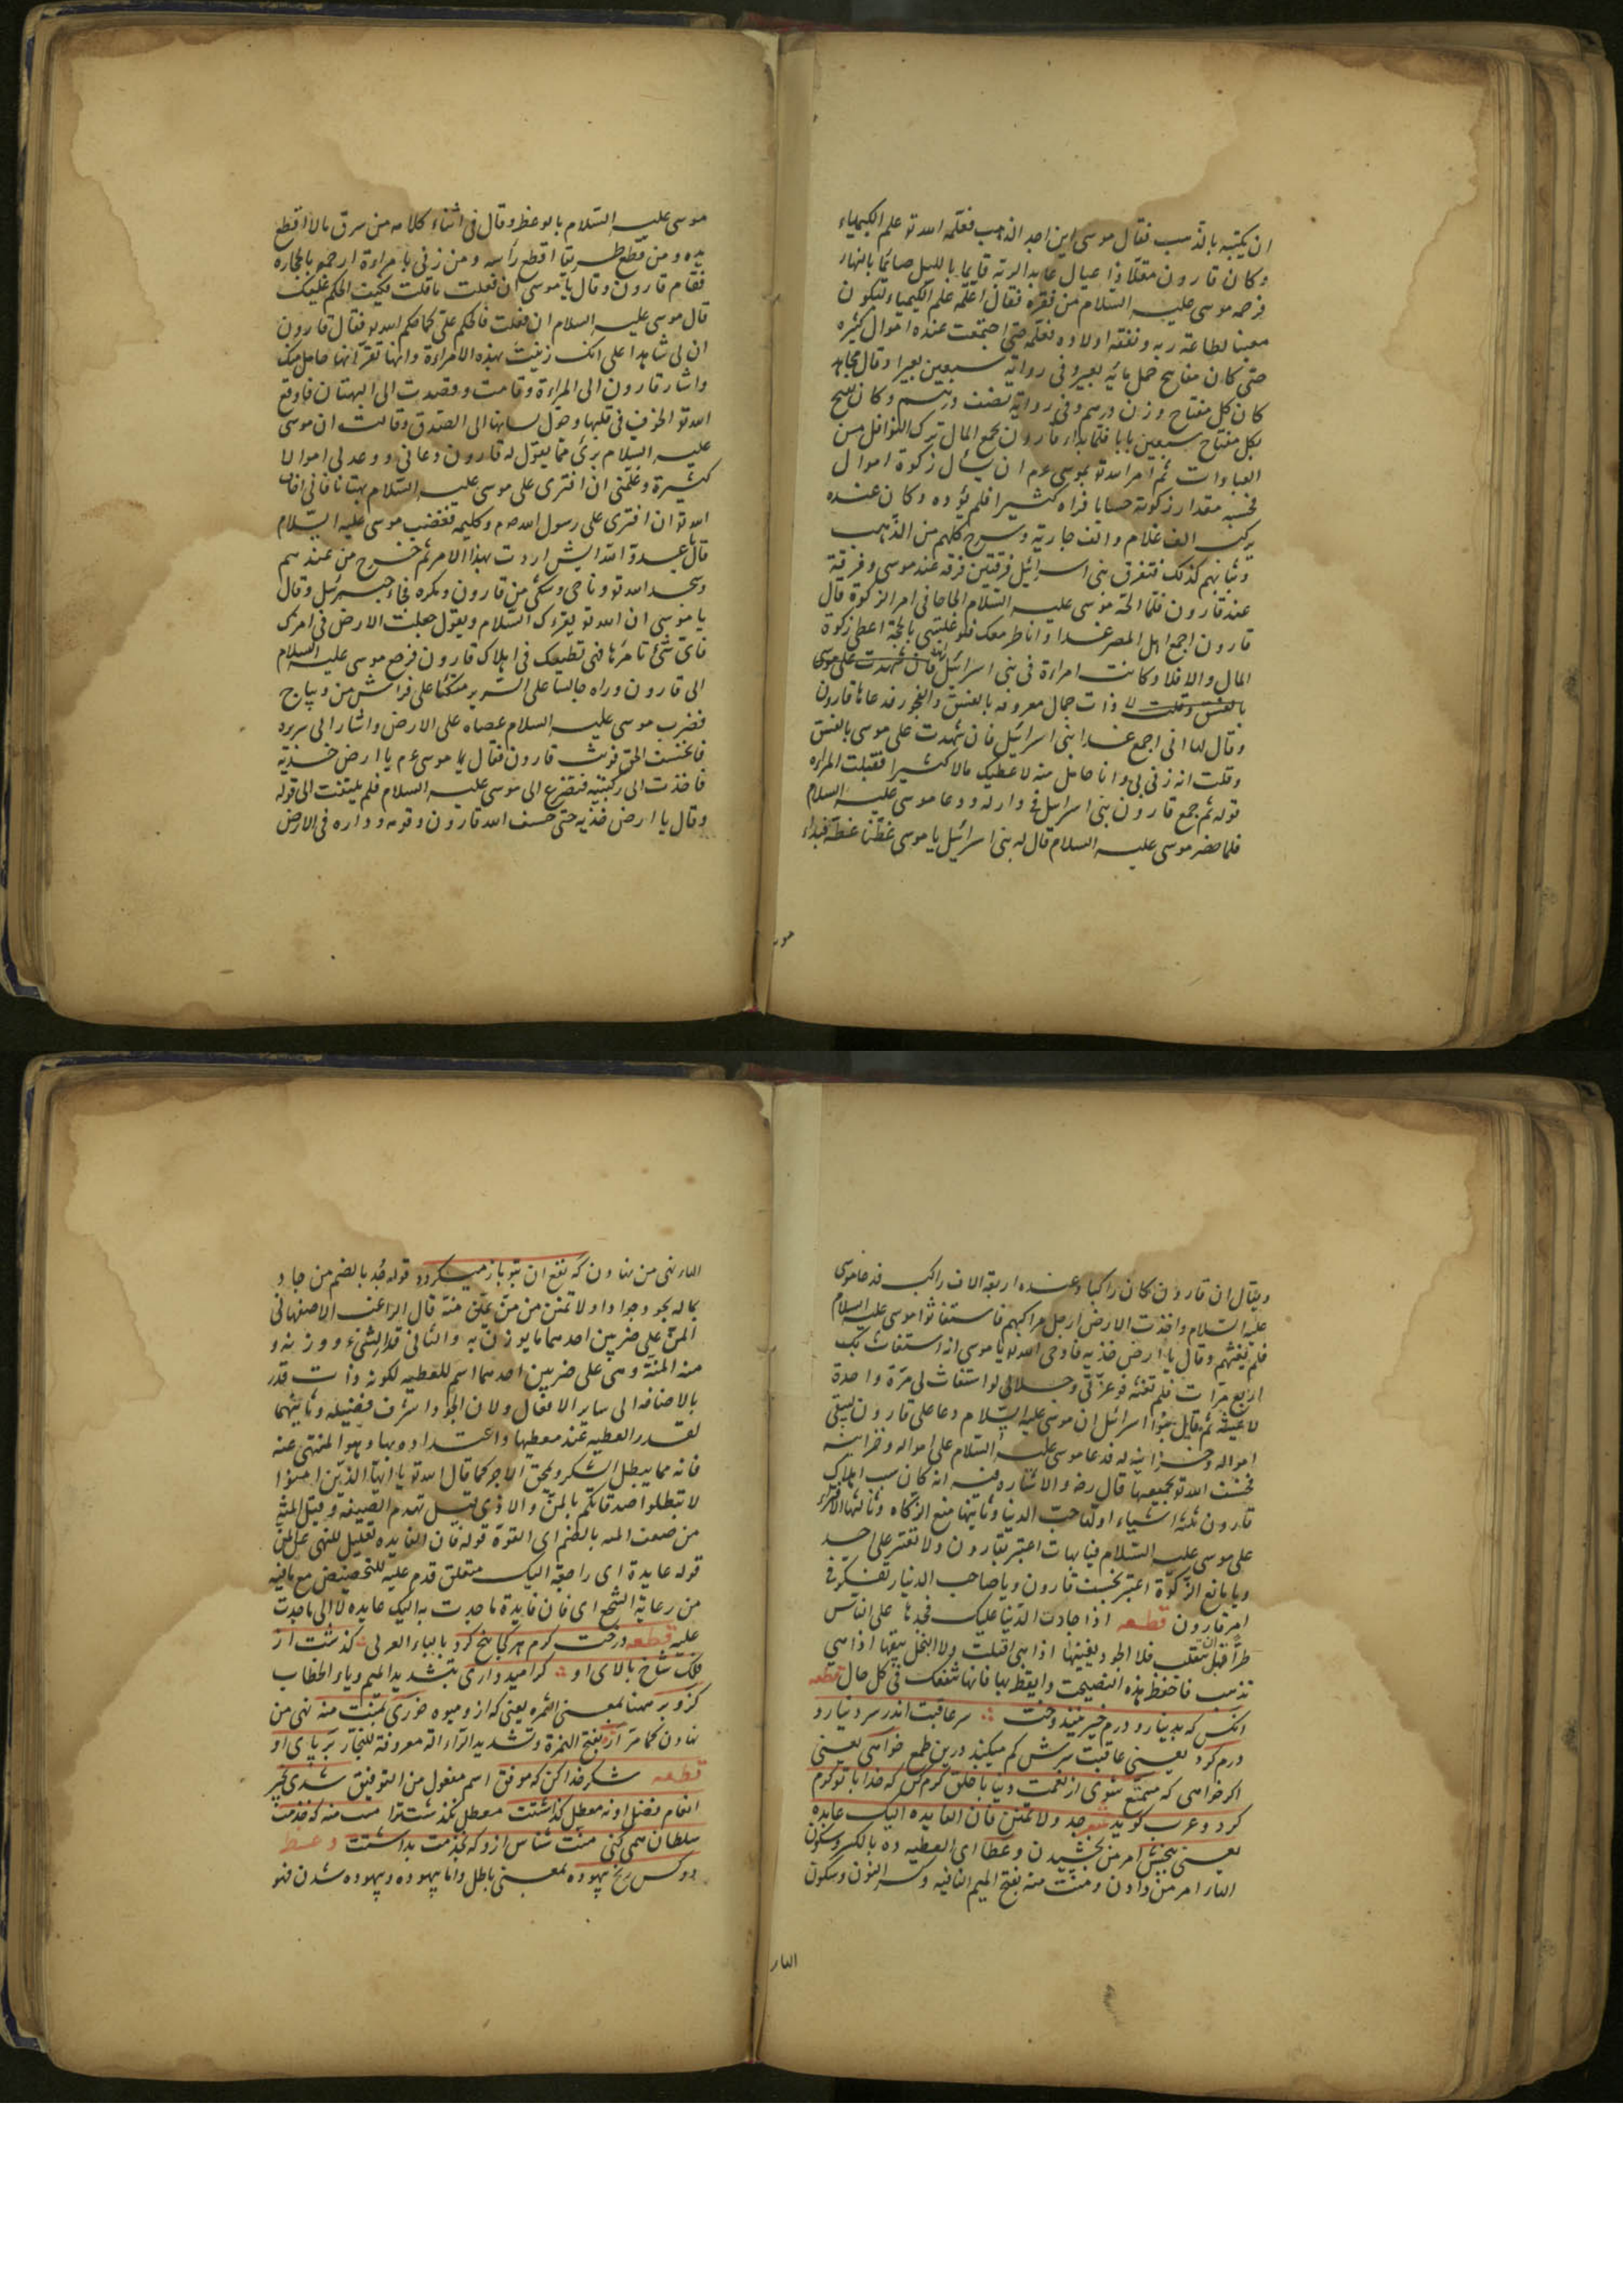 ان یکتبه بالذهب فقال موسی این اجد الذهب فعلمه الله تو علم الکیمیاء
وکان قارون مقلّا ذا عیال عابد الربّه قایما باللیل صایما بالنهار
فرحمه موسی علیه السلام من فقره فقال اعلّمه علم الکیمیاء لیکون
معینا لطاعة ربه ونفقة اولاده فعلّمه حتی اجتمعت عنده اموال کثیره
حتی کان مفاتیح حمل مائة بعیر وفی روایة سبعین بعیرا وقال مجاهد
کان کل مفتاح وزن درهم وفی روایة نصف درهم وکان یفتح
بکل مفتاح سبعین بابا فلما بدا رقارون بجمع المال ترک النوافل من
العبادات ثم امر الله تو بموسی عم ان یسأل زکوة اموال
فحسبه مقدار زکوته حسابا فراه کثیرا فلم یؤده وکان عنده
یرکب الف غلام والف جاریة وسرج کلهم من الذهب
وثیابهم کذلک فتفرق بنی اسرائیل فرقتین فرقة عند موسی وفرقة
عند قارون فلما الحّه موسی علیه السلام الحاحا فی امر الزکوة قال
قارون اجمع اهل المصر غدا واناظر معک فلو غلبتنی بالحجة اعطی زکوة
المال والا فلا وکانت امراءة فی بنی اسرائیل فان شهدت علی موسی
بالفسق وقلت لا ذات جمال معروفه بالفسق والفجور فدعاها قارون
وقال لها انی اجمع غدا بنی اسرائیل فان شهدت علی موسی بالفسق
وقلت انه زنی بی وانا حامل منه لاعطیک مالا کثیرا فقبلت المراه
قوله ثم جمع قارون بنی اسرائیل فی داره ودعا موسی علیه السلام
فلما حضر موسی علیه السلام قال له بنی اسرائیل یا موسی عظنا عظة فبداء
موسی
موسی علیه السلام بالوعظ وقال فی اثناء کلامه من سرق مالا اقطع
یده ومن قطع طریقا اقطع رأسه ومن زنی بامراءة ارجمه بالحجارة
فقام قارون وقال یا موسی ان فعلت ما قلت فکیف الحکم علیک
قال موسی علیه السلام ان فعلت فالحکم علیّ کما حکم الله تو فقال قارون
ان لی شاهدا علی انک زنیت بهذه الامراءة وانها تقرّ انها حامل منک
واشار قارون الی المراءة وقامت وقصدت الی البهتان فاوقع
الله تو الخوف فی قلبها وحوّل لسانها الی الصدق وقالت ان موسی
علیه السلام بریٔ مما یقول له قارون دعانی ووعد لی اموالا
کثیرة وعلّمنی ان افتری علی موسی علیه السلام بهتانا فانی اخاف
الله تو ان افتری علی رسول الله وکلیمه فغضب موسی علیه السلام
قال یا عدوّ الله ایش اردت بهذا الامر ثم خرج من عندهم
وسجد الله تو وناجی وشکی من قارون ومکره فجاء جبرئیل وقال
یا موسی ان الله تو یقرءک السلام ویقول جعلت الارض فی امرک
فایّ شیٔ تامرها فهی تطیعک فی اهلاک قارون فرجع موسی علیه السلام
الی قارون وراه جالسا علی السریر متکئا علی فراش من دیباج
فضرب موسی علیه السلام عصاه علی الارض واشار الی سریره
فانخسفت قارون فقال یا موسی عم یا ارض خذیه
فاخذت الی رکبتیه فتضرع الی موسی علیه السلام فلم یلتفت الی قوله
وقال یا ارض خذیه حتی خسف الله قارون وقومه وداره فی الارض
ویقال ان قارون کان راکبا وعنده اربعة الاف راکب فدعا موسی
علیه السلام واخذت الارض ارجل مراکبهم فاستغاثوا موسی علیه السلام
فلم یغثهم وقال یا ارض خذیه فاوحی الله تو یا موسی انه استغاث بک
اربع مرّات فلم تغثه فوعزتی وجلالی لو استغاث لی مرّة واحدة
لاغیثه ثم قایل بنوا اسرائیل ان موسی علیه السلام دعا علی قارون لیبقی
امواله وخزاینه له فدعا موسی علیه السلام علی امواله وخزاینه
فخسف الله تو بجمیعها قال رضه والاشاره فیه انه کان سبب اهلاک
قارون ثلثة اشیاء اولها حبّ الدنیا وثانیها منع الزکاه وثالثها الافتراء
علی موسی علیه السلام فیا بهات اعتبر بقارون ولا تفتر علی احد
ویا مانع الزکوة اعتبر بخسف قارون ویا صاحب الدنیا تفکر فی
امر قارون قطعه اذا جادت الدنیا علیک فجد بها علی الناس
طرّا قبل ان تنقلب فلا الجود یفنیها اذا هی اقبلت ولا البخل یبقیها اذا هی
تذهب فاحفظ هذه النصیحت وایقظ بها فانها تنفعک فی کل حال قطعه
آنکس که بدینار ودرم خیر نیندوخت سر عاقبت اندر سر دینار و
درم کرد یعنی عاقبت سرش کم میکند درین طمع خواهی یعنی
اکر خواهی که متمتع شوی از نعمت دنیا با خلق کرم کن که خدا با تو کرم
کرد وعرب کوید شعر جد ولا تمنن فان الفایده الیک عایده
یعنی ببخش امر من بخشیدن وعطا ای العطیه ده بالکسر وسکون
الهاء امر من دادن ومنّت منه بفتح المیم النافیه وکسر النون وسکون
الهاء
الهاء نهی من نهادن که نفع ان بتو باز میکردد قوله جُد بالضم من جاد
بماله یجود جودا ولا تمنن من منّ یمنّ منّة قال الراغب الاصفهانی
المنّ علی ضربین احدهما ما یوزن به والثانی قدر الشیء ووزنه و
منه المنّة وهی علی ضربین احدهما اسم للعطیه لکونه ذات قدر
بالاضافه الی سایر الافعال ولان الجود اشرف فضیله وثانیهما
لقدر العطیه عند معطیها واعتداده بها وهو المنهی عنه
فانه مما یبطل الشکر ویمحق الاجر کما قال الله تو یا ایها الذین امنوا
لا تبطلوا صدقاتکم بالمنّ والاذی قیل تهدم الصنیعه وقیل المنّة
من ضعف المنه بالضم ای القوّة قوله فان الفایده تعلیل للنهی عن المن
قوله عایدة ای راجعة الیک متعلق قدم علیه للتخصیص مع ما فیه
من رعایة السجع ای فان فایدة ما جدت به الیک عایده لا الی ما جدت
علیه قطعه درخت کرم هر کجا بیخ کرد بالباء العربی کذشت از
فلک شاخ وبالای او کر امیدواری بتشدید المیم ویاء الخطاب
کزو بر همنا بمعنی الثمره یعنی که از و میوه خوری بمنت منه نهی من
نهادن کما مرّ ارّه بفتح الهمزة وتشدید الرّاء اله معروفة للنجّار بر پای او
قطعه شکر خدا کن که موفق اسم مفعول من التوفیق شدی بخیر
انعام وفضل او نه معطل کذاشتت معطل نکذشت ترا منت منه که خدمت
سلطان همی کنی منّت شناس ازو که بخدمت بداشتت وعظ
دو کس رنج بیهوده بمعنی باطل وانما بیهوده وبیهوده شدن فهو